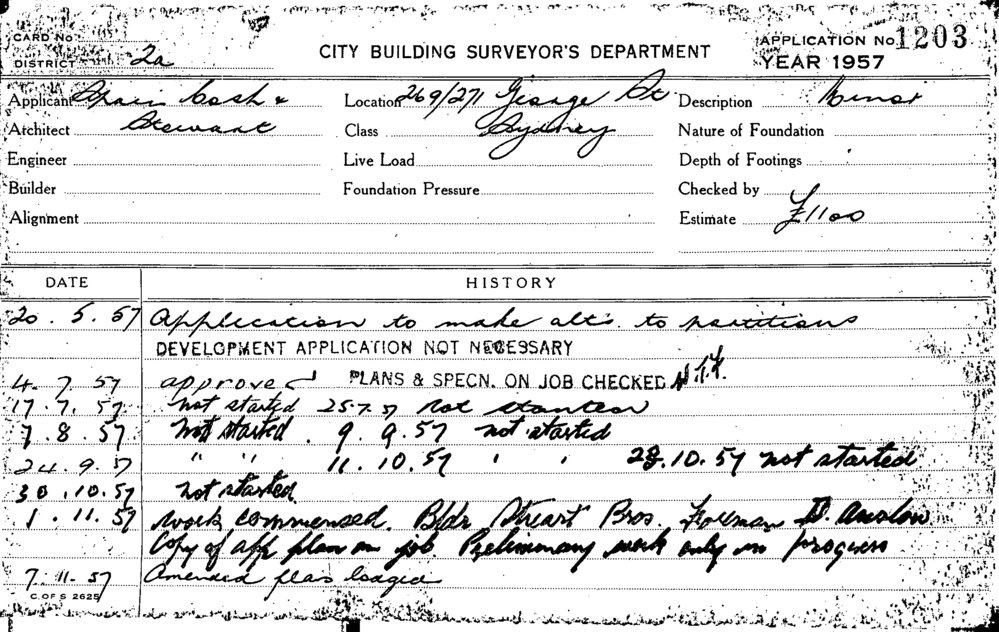 CARD No.
DISTRICT 2a
CITY BUILDING SURVEYOR'S DEPARTMENT
APPLICATION No 1203
YEAR 1957
Applicant Spain Cosh &
Location 269/271 George St
Description Minor
Architect Stewart
Class Sydney
Nature of Foundation
Engineer
Live Load
Depth of Footings
Builder
Foundation Pressure
Checked by
Alignment
Estimate £1100
DATE HISTORY
20.5.57 Application to make alt's. to partitions
DEVELOPMENT APPLICATION NOT NECESSARY
4.7.57 approved PLANS & SPECN. ON JOB CHECKED
17.7.57 not started 25.7.57 not started
7.8.57 not started. 9.9.57 not started
24.9.57 " " 11.10.57 " " 28.10.57 not started
30.10.57 not started
1.11.57 work commensed. Bldr Stuart Bros. Foreman D.
Copy of app plan on job. Preliminary work only in progress
7.11.57 Amended plan lodged
C. OF S 2625